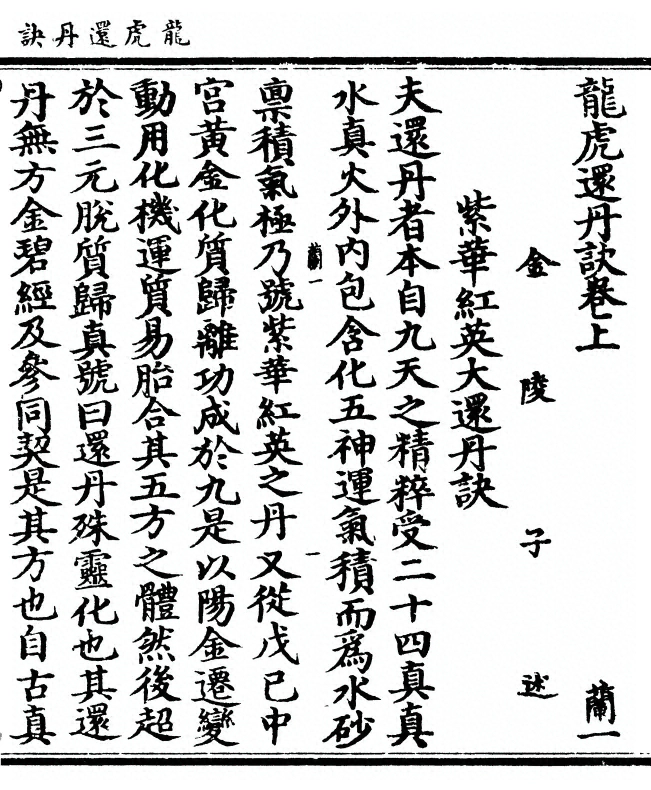 龍虎還丹訣
龍虎還丹訣卷上 蘭一
金陵子述
紫華紅英大還丹訣
夫還丹者本自九天之精粹受二十四真真
水真火外内包含化五神運氣積而爲水砂
蘭一 一
禀積氣極乃號紫華紅英之丹又從戊已中
宮黃金化質歸離功成於九是以陽金遷變
動用化機運質易胎合其五方之體然後超
於三元脫質歸真號曰還丹殊靈化也其還
丹無方金碧經及參同契是其方也自古真